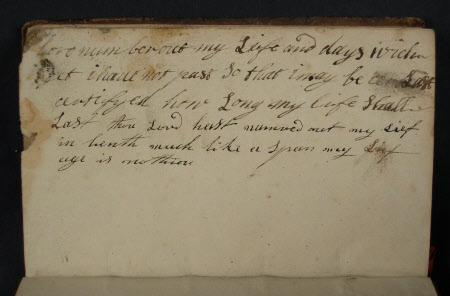 Lord number out my Life and days wich
et i have not past So that i may be Last
certifyed how Long my life Shall
Last thou Lord hast numred out my lief
in lenth much like a Span my Lief
age is nothin